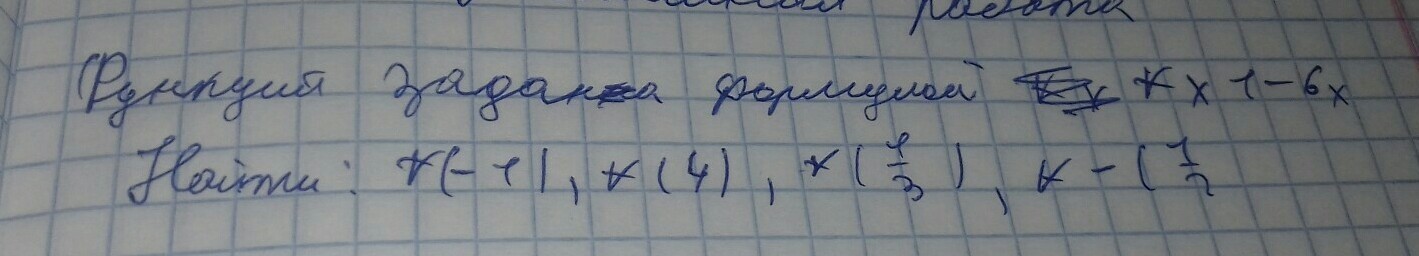 работа
Функций задана формулой к х 1-6х
Найти: к(-1), к(4), к(1/3), к-(1/2